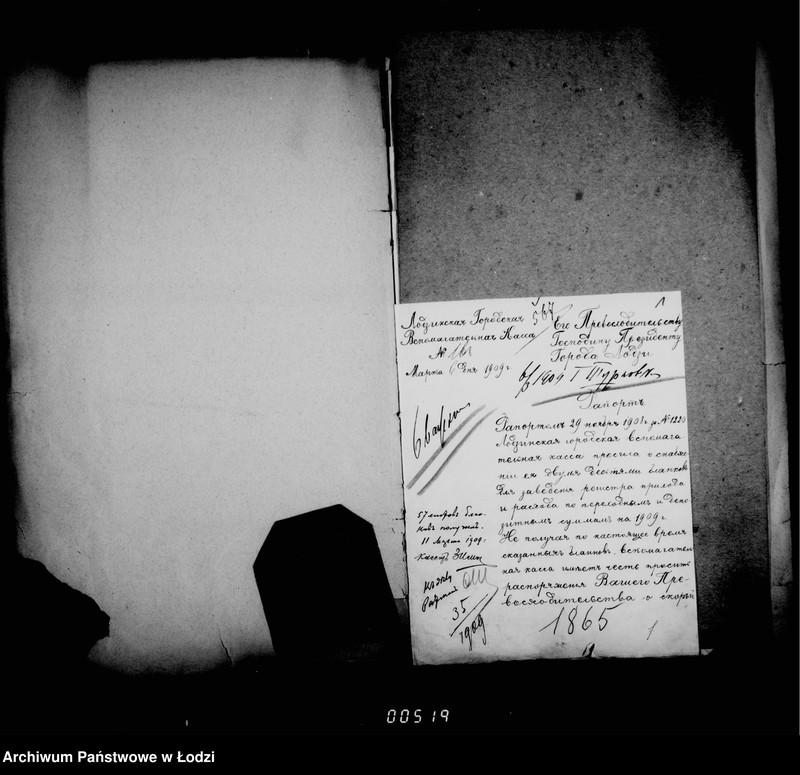 Лодзинская Городская
Вспомагательная Касса
№ 164
Марта 6 дня 1909 г.
567
1
Его Превосходительству
Господину Президенту
Города Лодзи
6/III 1909
Рапортъ
Рапортомъ 29 ноября 1908 г. за № 1220
Лодзинская городская вспомага-
тельная касса просила о снабже-
нии ея двумя десятями бланковъ
для заведенія регистра прихода
и расхода по переходнымъ и депо-
зитнымъ суммамъ на 1909 г.
Не получая по настоящее время
сказанныхъ бланковъ, вспомагатель-
ная касса имѣетъ честь просить
распоряженія Вашего Пре-
восходительства о скорой
57 листовъ блан-
ковъ получ.
11 Марта 1909 г.
35
1909
1865
1
00519
Archiwum Państwowe w Łodzi